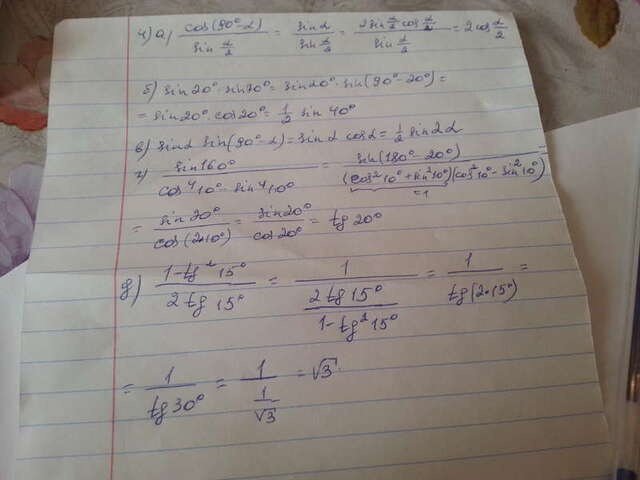 4) а) cos(90°-α) / sin α/2 = sin α / sin α/2 = 2 sin α/2 cos α/2 / sin α/2 = 2 cos α/2
б) sin 20° · sin 70° = sin 20° · sin(90°-20°) =
= sin 20° · cos 20° = 1/2 sin 40°
в) sin α sin(90°-α) = sin α cos α = 1/2 sin 2α
г) sin 160° / cos⁴10° - sin⁴10° = sin(180°-20°) / (cos²10° + sin²10°)(cos²10° - sin²10°) =
=1
= sin 20° / cos(2·10°) = sin 20° / cos 20° = tg 20°
д) 1-tg²15° / 2 tg 15° = 1 / (2 tg 15° / 1-tg²15°) = 1 / tg(2·15°) =
= 1 / tg 30° = 1 / (1/√3) = √3